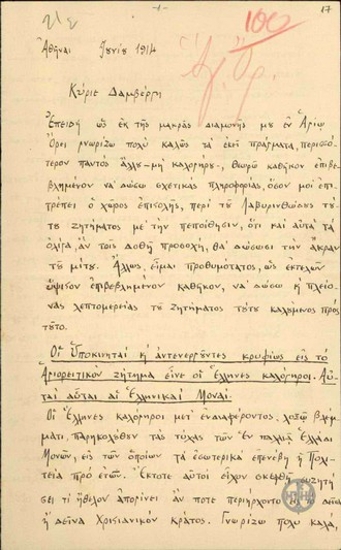 -1-
17
100
Ἅγ. Ὄρ.
Ἀθῆναι Ἰουνίου 1914
Κύριε Δαμβέργη
Ἐπειδὴ ὡς ἐκ τῆς μακρᾶς διαμονῆς μου ἐν Ἁγίῳ
Ὄρει γνωρίζω πολὺ καλῶς τὰ ἐκεῖ πράγματα, περισσό
τερον παντὸς ἄλλου μὴ καλογήρου, θεωρῶ καθῆκον ἐπιβε
βλημένον νὰ δώσω σχετικὰς πληροφορίας, ὅσον μοι ἐπι
τρέπει ὁ χῶρος ἐπιστολῆς, περὶ τοῦ Λαβυρινθώδους τού
του ζητήματος μὲ τὴν πεποίθησιν, ὅτι καὶ αὐτὰ τὰ
ὀλίγα, ἂν τοῖς δοθῇ προσοχή, θὰ δώσωσι τὴν ἄκραν
τοῦ μίτου. Ἄλλως, εἶμαι προθυμότατος, ὡς ἐκτελῶν
ὕψιστον ἐπιβεβλημένον καθῆκον, νὰ δώσω ἢ πλείο
νας λεπτομερείας τοῦ ζητήματος τούτου καλούμενος πρὸς
τοῦτο.
Οἱ Ὑποκινηταὶ ἢ ἀντενεργοῦντες κρυφίως εἰς τὸ
Ἁγιορειτικὸν ζήτημα εἶνε οἱ Ἕλληνες καλόγηροι. Αὐ
ταὶ αὗται αἱ Ἑλληνικαὶ Μοναί.
Οἱ Ἕλληνες καλόγηροι μετ' ἐνδιαφέροντος, λοξῷ βλέμ
ματι, παρηκολούθουν τὰς τύχας τῶν ἐν παλαιᾷ Ἑλλάδι
Μονῶν, εἰς τῶν ὁποίων τὰ ἐσωτερικὰ ἐπενέβη ἡ Πολι
τεία πρὸ ἐτῶν. Ἔκτοτε αὐτοὶ εἶχον σκεφθῆ συζητή
σει τί ἤθελον ἀπογίνει ἄν ποτε περιήρχοντο
ἢ δεῖνα Χριστιανικὸν κράτος. Γνωρίζω πολὺ καλά,